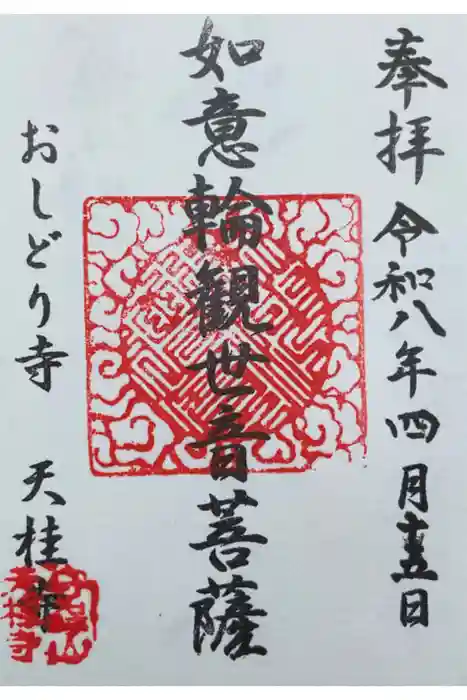 奉拝 令和八年四月十五日
如意輪観世音菩薩
おしどり寺 天桂寺